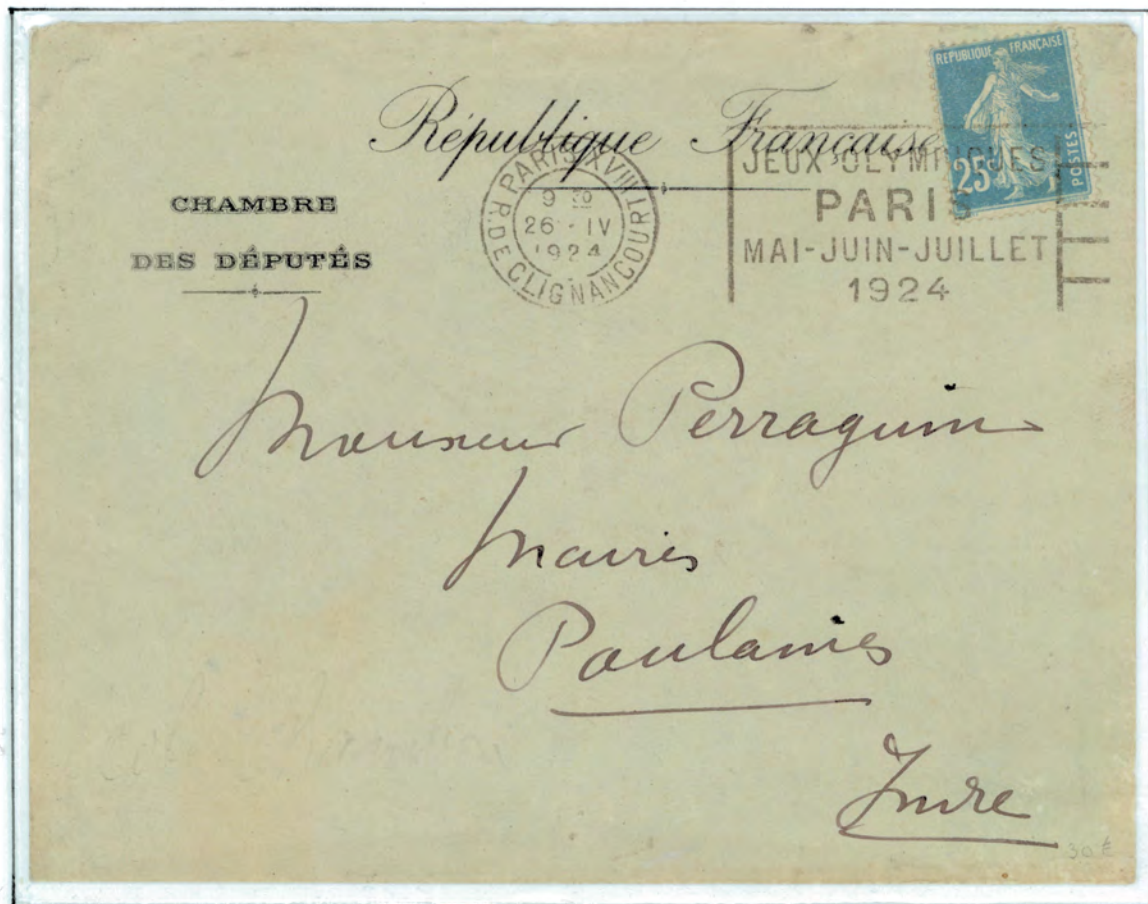 République Française
CHAMBRE
DES DÉPUTÉS
PARIS XVIII
R. DE CLIGNANCOURT
9 30
26 - IV
1924
JEUX OLYMPIQUES
PARIS
MAI-JUIN-JUILLET
1924
RÉPUBLIQUE FRANÇAISE
25c
POSTES
Monsieur Perraguin
Poulaines
Indre
30 €